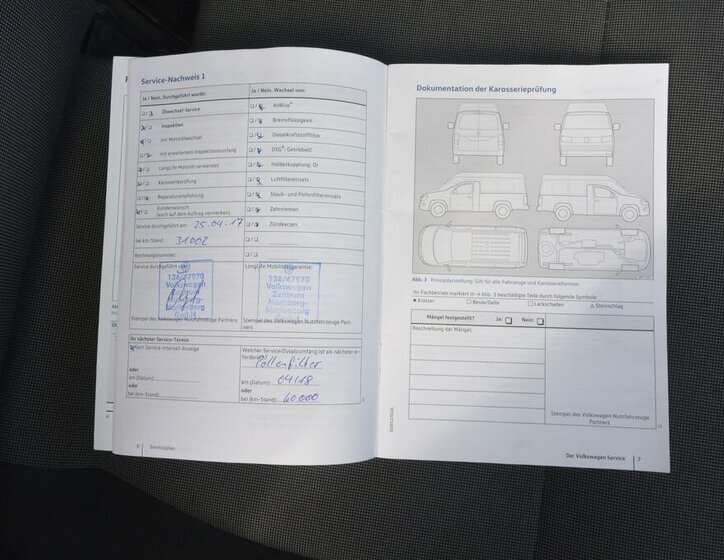 Service-Nachweis 1
Ja / Nein. Durchgeführt wurde:
Ölwechsel-Service
Inspektion
mit Motorölwechsel
mit erweitertem Inspektionsumfang
LongLife Motoröl verwendet
Karosserieprüfung
Reparaturempfehlung
Kundenwunsch
(auch auf dem Auftrag vermerken)
Service durchgeführt am: 25.04.17
bei km-Stand: 31002
Rechnungsnummer:
Service durchgeführt von:
136/47970
Volkswagen
Zentrum
Nürnberg-
Marienberg
GmbH
Stempel des Volkswagen Nutzfahrzeuge Partners
Ja / Nein. Wechsel von:
AdBlue®
Bremsflüssigkeit
Dieselkraftstofffilter
DSG®: Getriebeöl
Haldexkupplung: Öl
Luftfiltereinsatz
Staub- und Pollenfiltereinsatz
Zahnriemen
Zündkerzen
LongLife Mobilitätsgarantie:
136/47970
Volkswagen
Zentrum
Nürnberg-
Marienberg
GmbH
Stempel des Volkswagen Nutzfahrzeuge Part-
ners
Ihr nächster Service-Termin
Siehe Service-Intervall-Anzeige
oder
am (Datum):
oder
bei (km-Stand):
Welcher Service/Zusatzumfang ist als nächster er-
forderlich?
Pollenfilter
am (Datum): 04/18
oder
bei (km-Stand): 60000
6 Serviceplan
Dokumentation der Karosserieprüfung
Abb. 3 Prinzipdarstellung: Gilt für alle Fahrzeuge und Karosserieformen.
Ihr Fachbetrieb markiert in → Abb. 3 beschädigte Teile durch folgende Symbole:
× Kratzer ○ Beule/Delle □ Lackschaden △ Steinschlag
Mängel festgestellt? Ja: Nein:
Beschreibung der Mängel:
Stempel des Volkswagen Nutzfahrzeuge
Partners
Der Volkswagen Service 7